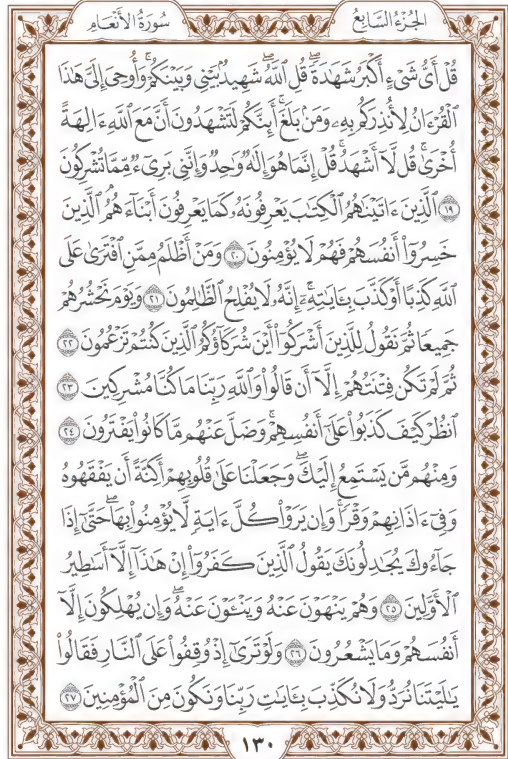 الجُزْءُ السَّابِعُ
سُورَةُ الأَنْعَامِ
قُلْ أَىُّ شَىْءٍ أَكْبَرُ شَهَٰدَةًۖ قُلِ ٱللَّهُۖ شَهِيدُۢ بَيْنِى وَبَيْنَكُمْۚ وَأُوحِىَ إِلَىَّ هَٰذَا
ٱلْقُرْءَانُ لِأُنذِرَكُم بِهِۦ وَمَنۢ بَلَغَۚ أَئِنَّكُمْ لَتَشْهَدُونَ أَنَّ مَعَ ٱللَّهِ ءَالِهَةً
أُخْرَىٰۚ قُل لَّآ أَشْهَدُۚ قُلْ إِنَّمَا هُوَ إِلَٰهٌ وَٰحِدٌ وَإِنَّنِى بَرِىٓءٌ مِّمَّا تُشْرِكُونَ
١٩ ٱلَّذِينَ ءَاتَيْنَٰهُمُ ٱلْكِتَٰبَ يَعْرِفُونَهُۥ كَمَا يَعْرِفُونَ أَبْنَآءَهُمُ ٱلَّذِينَ
خَسِرُوٓا۟ أَنفُسَهُمْ فَهُمْ لَا يُؤْمِنُونَ ٢٠ وَمَنْ أَظْلَمُ مِمَّنِ ٱفْتَرَىٰ عَلَى
ٱللَّهِ كَذِبًا أَوْ كَذَّبَ بِـَٔايَٰتِهِۦٓۚ إِنَّهُۥ لَا يُفْلِحُ ٱلظَّٰلِمُونَ ٢١ وَيَوْمَ نَحْشُرُهُمْ
جَمِيعًا ثُمَّ نَقُولُ لِلَّذِينَ أَشْرَكُوٓا۟ أَيْنَ شُرَكَآؤُكُمُ ٱلَّذِينَ كُنتُمْ تَزْعُمُونَ ٢٢
ثُمَّ لَمْ تَكُن فِتْنَتُهُمْ إِلَّآ أَن قَالُوا۟ وَٱللَّهِ رَبِّنَا مَا كُنَّا مُشْرِكِينَ ٢٣
ٱنظُرْ كَيْفَ كَذَبُوا۟ عَلَىٰٓ أَنفُسِهِمْۚ وَضَلَّ عَنْهُم مَّا كَانُوا۟ يَفْتَرُونَ ٢٤
وَمِنْهُم مَّن يَسْتَمِعُ إِلَيْكَۖ وَجَعَلْنَا عَلَىٰ قُلُوبِهِمْ أَكِنَّةً أَن يَفْقَهُوهُ
وَفِىٓ ءَاذَانِهِمْ وَقْرًاۚ وَإِن يَرَوْا۟ كُلَّ ءَايَةٍ لَّا يُؤْمِنُوا۟ بِهَاۖ حَتَّىٰٓ إِذَا
جَآءُوكَ يُجَٰدِلُونَكَ يَقُولُ ٱلَّذِينَ كَفَرُوٓا۟ إِنْ هَٰذَآ إِلَّآ أَسَٰطِيرُ
ٱلْأَوَّلِينَ ٢٥ وَهُمْ يَنْهَوْنَ عَنْهُ وَيَنْـَٔوْنَ عَنْهُۖ وَإِن يُهْلِكُونَ إِلَّآ
أَنفُسَهُمْ وَمَا يَشْعُرُونَ ٢٦ وَلَوْ تَرَىٰٓ إِذْ وُقِفُوا۟ عَلَى ٱلنَّارِ فَقَالُوا۟
يَٰلَيْتَنَا نُرَدُّ وَلَا نُكَذِّبَ بِـَٔايَٰتِ رَبِّنَا وَنَكُونَ مِنَ ٱلْمُؤْمِنِينَ ٢٧
١٣٠